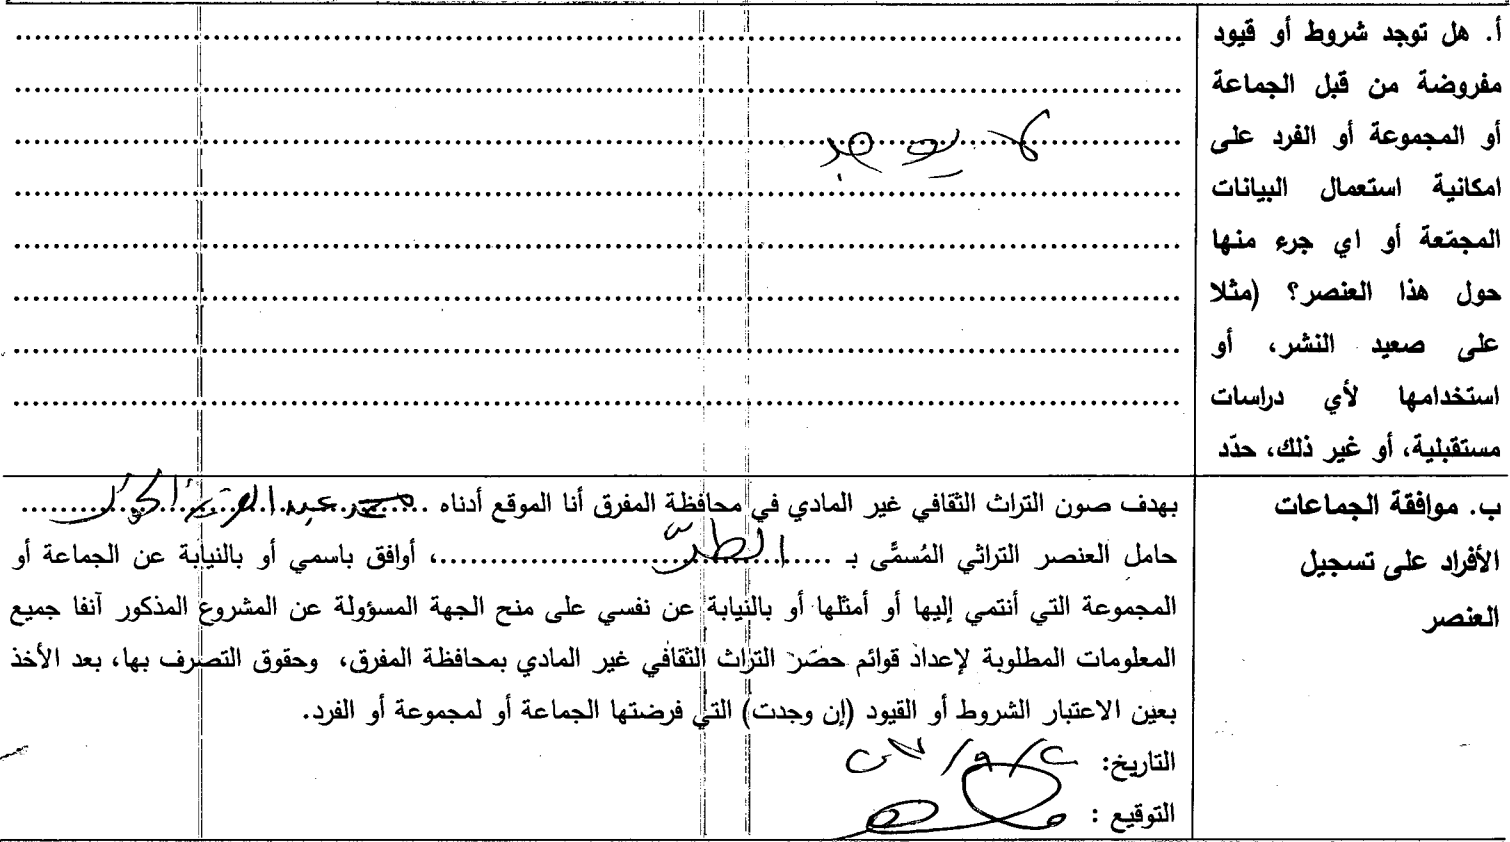 أ. هل توجد شروط أو قيود
مفروضة من قبل الجماعة
أو المجموعة أو الفرد على
امكانية استعمال البيانات
المجمّعة أو اي جرء منها
حول هذا العنصر؟ (مثلا
على صعيد النشر، أو
استخدامها لأي دراسات
مستقبلية، أو غير ذلك، حدّد
لا يوجد
ب. موافقة الجماعات
الأفراد على تسجيل
العنصر
بهدف صون التراث الثقافي غير المادي في محافظة المفرق أنا الموقع أدناه محمد عبد
حامل العنصر التراثي المُسمَّى بـ الطبّ، أوافق باسمي أو بالنيابة عن الجماعة أو
المجموعة التي أنتمي إليها أو أمثلها أو بالنيابة عن نفسي على منح الجهة المسؤولة عن المشروع المذكور آنفا جميع
المعلومات المطلوبة لإعداد قوائم حصَر التراث الثقافي غير المادي بمحافظة المفرق، وحقوق التصرف بها، بعد الأخذ
بعين الاعتبار الشروط أو القيود (إن وجدت) التي فرضتها الجماعة أو لمجموعة أو الفرد.
التاريخ:
التوقيع :